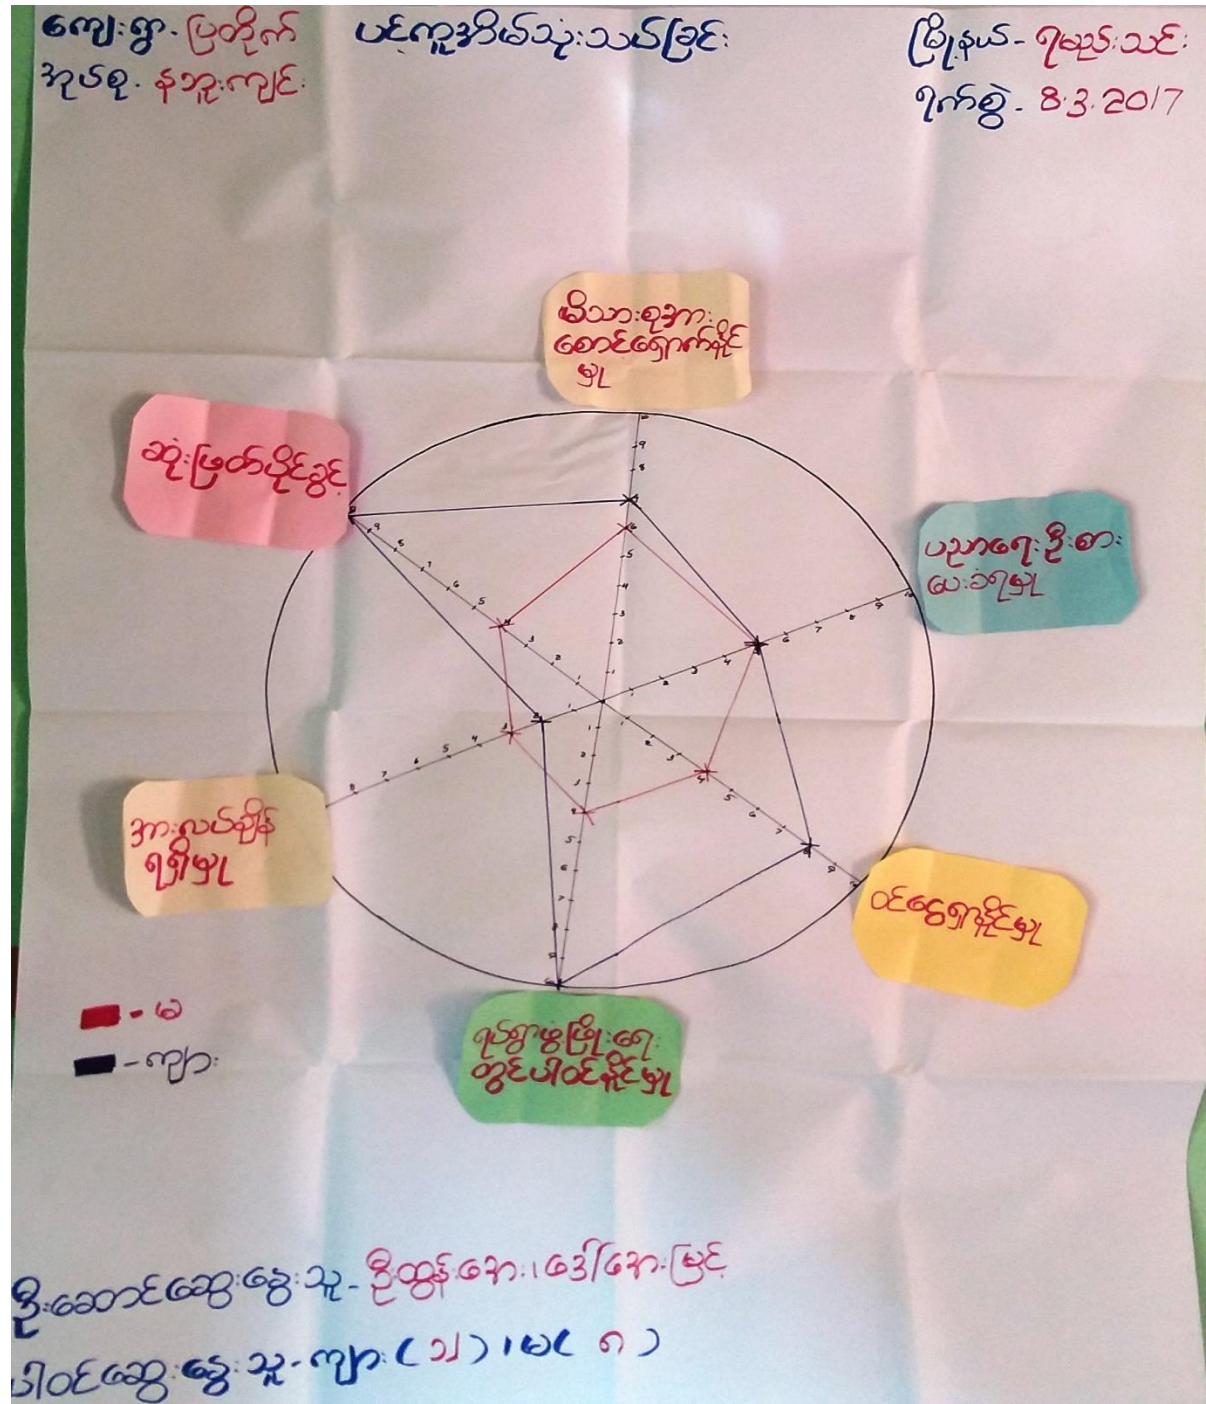 ကျေးရွာ - ပြတိုက်
ပင့်ကူအိမ်သုံးသပ်ခြင်း
မြို့နယ် - ရမည်းသင်း
အုပ်စု - နဘူးကျင်း
ရက်စွဲ - 8.3.2017
မိသားစုအား
စောင့်ရှောက်နိုင်
မှု
ဆုံးဖြတ်ပိုင်ခွင့်
ပညာရေးဦးစား
ပေးခံရမှု
အားလပ်ချိန်
ရရှိမှု
ဝင်ငွေရှာနိုင်မှု
ရပ်ရွာဖွံ့ဖြိုးရေး
တွင်ပါဝင်နိုင်မှု
- မ
- ကျား
ဦးဆောင်ဆွေးနွေးသူ - ဦးထွန်းအေး၊ ဒေါ်အေးမြင့်
ပါဝင်ဆွေးနွေးသူ - ကျား ( ) ၊ မ ( ၈ )